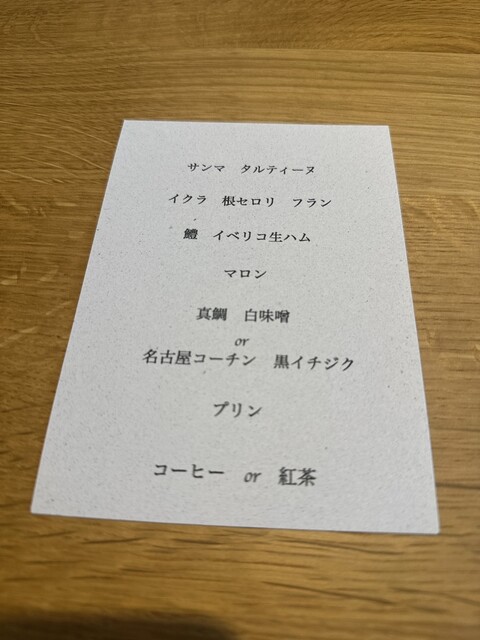 サンマ　タルティーヌ
イクラ　根セロリ　フラン
鱧　イベリコ生ハム
マロン
真鯛　白味噌
or
名古屋コーチン　黒イチジク
プリン
コーヒー　or　紅茶